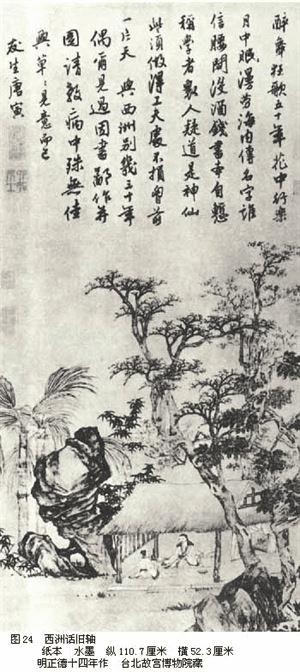 醉舞狂歌五十年花中行樂
月中眠漫勞海內傳名字誰
信腰間沒酒錢書本自慙
稱學者眾人疑道是神仙
些須做得工夫處不損胸前
一片天 與西洲別幾三十年
偶爾見過因書鄙作并
圖請教病中殊無佳
興草〻見意而已
友生唐寅
图24 西洲话旧轴
纸本 水墨 纵110.7厘米 横52.3厘米
明正德十四年作 台北故宫博物院藏